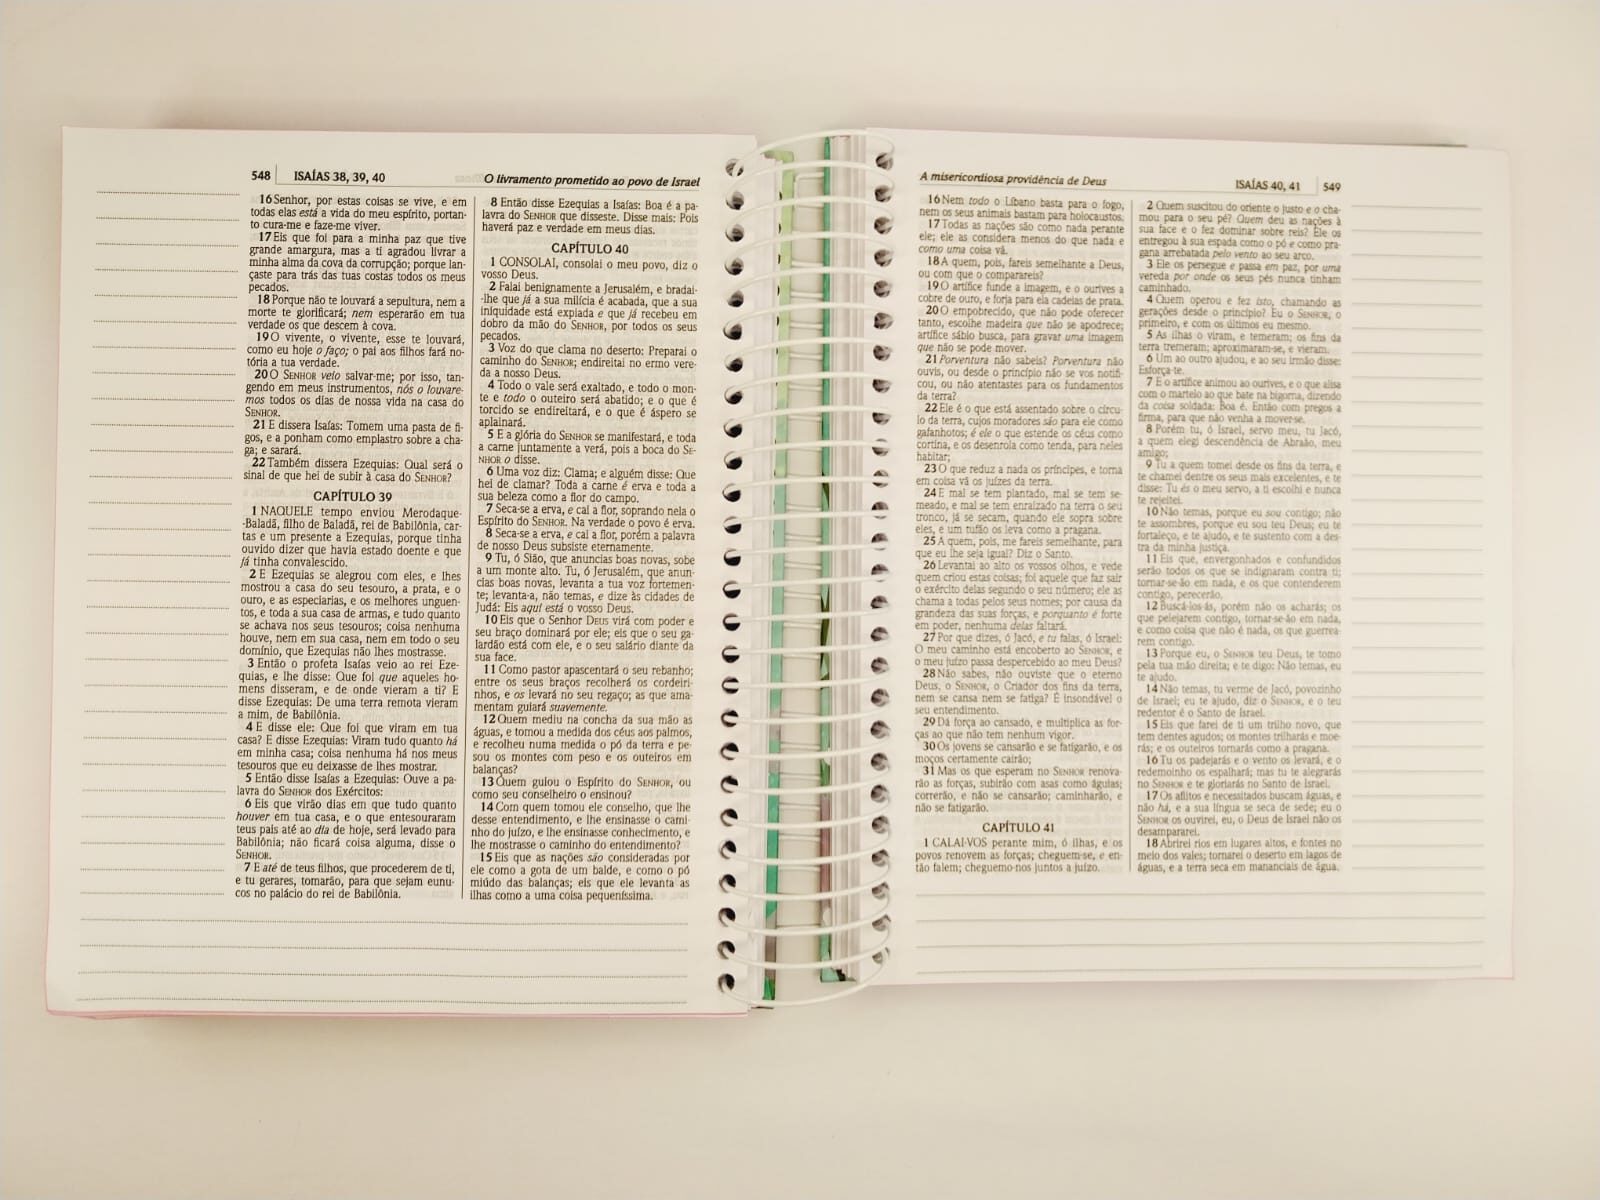 548 ISAÍAS 38, 39, 40
O livramento prometido ao povo de Israel
16 Senhor, por estas coisas se vive, e em
todas elas está a vida do meu espírito, portan-
to cura-me e faze-me viver.
17 Eis que foi para a minha paz que tive
grande amargura, mas a ti agradou livrar a
minha alma da cova da corrupção; porque lan-
çaste para trás das tuas costas todos os meus
pecados.
18 Porque não te louvará a sepultura, nem a
morte te glorificará; nem esperarão em tua
verdade os que descem à cova.
19 O vivente, o vivente, esse te louvará,
como eu hoje o faço; o pai aos filhos fará no-
tória a tua verdade.
20 O SENHOR veio salvar-me; por isso, tan-
gendo em meus instrumentos, nós o louvare-
mos todos os dias de nossa vida na casa do
SENHOR.
21 E dissera Isaías: Tomem uma pasta de fi-
gos, e a ponham como emplastro sobre a cha-
ga; e sarará.
22 Também dissera Ezequias: Qual será o
sinal de que hei de subir à casa do SENHOR?
CAPÍTULO 39
1 NAQUELE tempo enviou Merodaque-
-Baladã, filho de Baladã, rei de Babilônia, car-
tas e um presente a Ezequias, porque tinha
ouvido dizer que havia estado doente e que
já tinha convalescido.
2 E Ezequias se alegrou com eles, e lhes
mostrou a casa do seu tesouro, a prata, e o
ouro, e as especiarias, e os melhores unguen-
tos, e toda a sua casa de armas, e tudo quanto
se achava nos seus tesouros; coisa nenhuma
houve, nem em sua casa, nem em todo o seu
domínio, que Ezequias não lhes mostrasse.
3 Então o profeta Isaías veio ao rei Eze-
quias, e lhe disse: Que foi que aqueles ho-
mens disseram, e de onde vieram a ti? E
disse Ezequias: De uma terra remota vieram
a mim, de Babilônia.
4 E disse ele: Que foi que viram em tua
casa? E disse Ezequias: Viram tudo quanto há
em minha casa; coisa nenhuma há nos meus
tesouros que eu deixasse de lhes mostrar.
5 Então disse Isaías a Ezequias: Ouve a pa-
lavra do SENHOR dos Exércitos:
6 Eis que virão dias em que tudo quanto
houver em tua casa, e o que entesouraram
teus pais até ao dia de hoje, será levado para
Babilônia; não ficará coisa alguma, disse o
SENHOR.
7 E até de teus filhos, que procederem de ti,
e tu gerares, tomarão, para que sejam eunu-
cos no palácio do rei de Babilônia.
8 Então disse Ezequias a Isaías: Boa é a pa-
lavra do SENHOR que disseste. Disse mais: Pois
haverá paz e verdade em meus dias.
CAPÍTULO 40
1 CONSOLAI, consolai o meu povo, diz o
vosso Deus.
2 Falai benignamente a Jerusalém, e bradai-
-lhe que já a sua milícia é acabada, que a sua
iniquidade está expiada e que já recebeu em
dobro da mão do SENHOR, por todos os seus
pecados.
3 Voz do que clama no deserto: Preparai o
caminho do SENHOR; endireitai no ermo vere-
da a nosso Deus.
4 Todo o vale será exaltado, e todo o mon-
te e todo o outeiro será abatido; e o que é
torcido se endireitará, e o que é áspero se
aplainará.
5 E a glória do SENHOR se manifestará, e toda
a carne juntamente a verá, pois a boca do SE-
NHOR o disse.
6 Uma voz diz: Clama; e alguém disse: Que
hei de clamar? Toda a carne é erva e toda a
sua beleza como a flor do campo.
7 Seca-se a erva, e cai a flor, soprando nela o
Espírito do SENHOR. Na verdade o povo é erva.
8 Seca-se a erva, e cai a flor, porém a palavra
de nosso Deus subsiste eternamente.
9 Tu, ó Sião, que anuncias boas novas, sobe
a um monte alto. Tu, ó Jerusalém, que anun-
cias boas novas, levanta a tua voz fortemen-
te; levanta-a, não temas, e dize às cidades de
Judá: Eis aqui está o vosso Deus.
10 Eis que o Senhor DEUS virá com poder e
seu braço dominará por ele; eis que o seu ga-
lardão está com ele, e o seu salário diante da
sua face.
11 Como pastor apascentará o seu rebanho;
entre os seus braços recolherá os cordeiri-
nhos, e os levará no seu regaço; as que ama-
mentam guiará suavemente.
12 Quem mediu na concha da sua mão as
águas, e tomou a medida dos céus aos palmos,
e recolheu numa medida o pó da terra e pe-
sou os montes com peso e os outeiros em
balanças?
13 Quem guiou o Espírito do SENHOR, ou
como seu conselheiro o ensinou?
14 Com quem tomou ele conselho, que lhe
desse entendimento, e lhe ensinasse o cami-
nho do juízo, e lhe ensinasse conhecimento, e
lhe mostrasse o caminho do entendimento?
15 Eis que as nações são consideradas por
ele como a gota de um balde, e como o pó
miúdo das balanças; eis que ele levanta as
ilhas como a uma coisa pequeníssima.
A misericordiosa providência de Deus
ISAÍAS 40, 41 549
16 Nem todo o Líbano basta para o fogo,
nem os seus animais bastam para holocaustos.
17 Todas as nações são como nada perante
ele; ele as considera menos do que nada e
como uma coisa vã.
18 A quem, pois, fareis semelhante a Deus,
ou com que o comparareis?
19 O artífice funde a imagem, e o ourives a
cobre de ouro, e forja para ela cadeias de prata.
20 O empobrecido, que não pode oferecer
tanto, escolhe madeira que não se apodrece;
artífice sábio busca, para gravar uma imagem
que não se pode mover.
21 Porventura não sabeis? Porventura não
ouvis, ou desde o princípio não se vos notifi-
cou, ou não atentastes para os fundamentos
da terra?
22 Ele é o que está assentado sobre o círcu-
lo da terra, cujos moradores são para ele como
gafanhotos; é ele o que estende os céus como
cortina, e os desenrola como tenda, para neles
habitar;
23 O que reduz a nada os príncipes, e torna
em coisa vã os juízes da terra.
24 E mal se tem plantado, mal se tem se-
meado, e mal se tem enraizado na terra o seu
tronco, já se secam, quando ele sopra sobre
eles, e um tufão os leva como a pragana.
25 A quem, pois, me fareis semelhante, para
que eu lhe seja igual? Diz o Santo.
26 Levantai ao alto os vossos olhos, e vede
quem criou estas coisas; foi aquele que faz sair
o exército delas segundo o seu número; ele as
chama a todas pelos seus nomes; por causa da
grandeza das suas forças, e porquanto é forte
em poder, nenhuma delas faltará.
27 Por que dizes, ó Jacó, e tu falas, ó Israel:
O meu caminho está encoberto ao SENHOR, e
o meu juízo passa despercebido ao meu Deus?
28 Não sabes, não ouviste que o eterno
Deus, o SENHOR, o Criador dos fins da terra,
nem se cansa nem se fatiga? É insondável o
seu entendimento.
29 Dá força ao cansado, e multiplica as for-
ças ao que não tem nenhum vigor.
30 Os jovens se cansarão e se fatigarão, e os
moços certamente cairão;
31 Mas os que esperam no SENHOR renova-
rão as forças, subirão com asas como águias;
correrão, e não se cansarão; caminharão, e
não se fatigarão.
CAPÍTULO 41
1 CALAI-VOS perante mim, ó ilhas, e os
povos renovem as forças; cheguem-se, e en-
tão falem; cheguemo-nos juntos a juízo.
2 Quem suscitou do oriente o justo e o cha-
mou para o seu pé? Quem deu as nações à
sua face e o fez dominar sobre reis? Ele os
entregou à sua espada como o pó e como pra-
gana arrebatada pelo vento ao seu arco.
3 Ele os persegue e passa em paz, por uma
vereda por onde os seus pés nunca tinham
caminhado.
4 Quem operou e fez isto, chamando as
gerações desde o princípio? Eu o SENHOR, o
primeiro, e com os últimos eu mesmo.
5 As ilhas o viram, e temeram; os fins da
terra tremeram; aproximaram-se, e vieram.
6 Um ao outro ajudou, e ao seu irmão disse:
Esforça-te.
7 E o artífice animou ao ourives, e o que alisa
com o martelo ao que bate na bigorna, dizendo
da coisa soldada: Boa é. Então com pregos a
firma, para que não venha a mover-se.
8 Porém tu, ó Israel, servo meu, tu Jacó,
a quem elegi descendência de Abraão, meu
amigo;
9 Tu a quem tomei desde os fins da terra, e
te chamei dentre os seus mais excelentes, e te
disse: Tu és o meu servo, a ti escolhi e nunca
te rejeitei.
10 Não temas, porque eu sou contigo; não
te assombres, porque eu sou teu Deus; eu te
fortaleço, e te ajudo, e te sustento com a des-
tra da minha justiça.
11 Eis que, envergonhados e confundidos
serão todos os que se indignaram contra ti;
tornar-se-ão em nada, e os que contenderem
contigo, perecerão.
12 Buscá-los-ás, porém não os acharás; os
que pelejarem contigo, tornar-se-ão em nada,
e como coisa que não é nada, os que guerrea-
rem contigo.
13 Porque eu, o SENHOR teu Deus, te tomo
pela tua mão direita; e te digo: Não temas, eu
te ajudo.
14 Não temas, tu verme de Jacó, povozinho
de Israel; eu te ajudo, diz o SENHOR, e o teu
redentor é o Santo de Israel.
15 Eis que farei de ti um trilho novo, que
tem dentes agudos; os montes trilharás e moe-
rás; e os outeiros tornarás como a pragana.
16 Tu os padejarás e o vento os levará, e o
redemoinho os espalhará; mas tu te alegrarás
no SENHOR e te gloriarás no Santo de Israel.
17 Os aflitos e necessitados buscam águas, e
não há, e a sua língua se seca de sede; eu o
SENHOR os ouvirei, eu, o Deus de Israel não os
desampararei.
18 Abrirei rios em lugares altos, e fontes no
meio dos vales; tornarei o deserto em lagos de
águas, e a terra seca em mananciais de água.